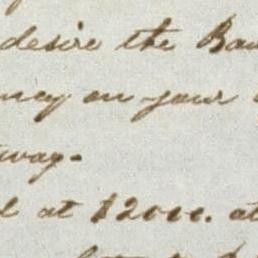 desire the Ban
ney on your
way.
d at $2000. at